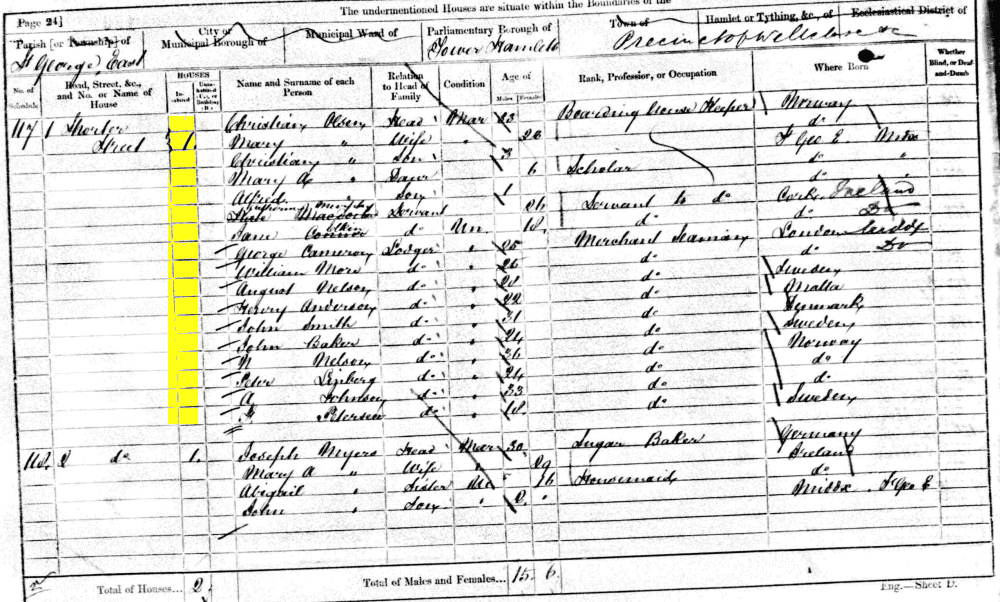 The undermentioned Houses are situate within the Boundaries of the
Page 24]
Parish [or Township] of
St George East
City or
Municipal Borough of
Municipal Ward of
Parliamentary Borough of
Tower Hamlets
Town of
Hamlet or Tything, &c., of
Ecclesiastical District of
Precinct of Wellclose
No. of Schedule
Road, Street, &c., and No. or Name of House
HOUSES
Name and Surname of each Person
Relation to Head of Family
Condition
Age of
Males Females
Rank, Profession, or Occupation
Where Born
Whether Blind, or Deaf-and-Dumb
117 1 Shorter Street 1 Christian Olsen Head Mar 23 Boarding house Keeper Norway
Mary " Wife " 26 do
Christian " Son 3 St Geo E. Middx
Mary A " Daur 6 Scholar do "
Alfred " Son 1 do
Servant 26 Servant to do Cork Ireland
Jane Connor do Un. 18 do do Do
George Cameron Lodger " 25 Merchant Seaman London Middx
William More do " 26 do do Do
August Nelson do " 28 do Sweden
Henry Anderson do " 22 do Malta
John Smith do " 31 do Denmark
John Baker do " 24 do Sweden
N Nelson do " 36 do Norway
Peter do " 24 do do
A Johnson do " 33 do do
Peterson do " 18 do Sweden
118 2 do 1 Joseph Myers Head Mar 30 Sugar Baker Germany
Mary A " Wife " 29 Ireland
Abigail " Sister Un 16 Housemaid do
John " Son " 2 Middx St Geo E
Total of Houses... 2
Total of Males and Females... 15 6
Eng.—Sheet D.